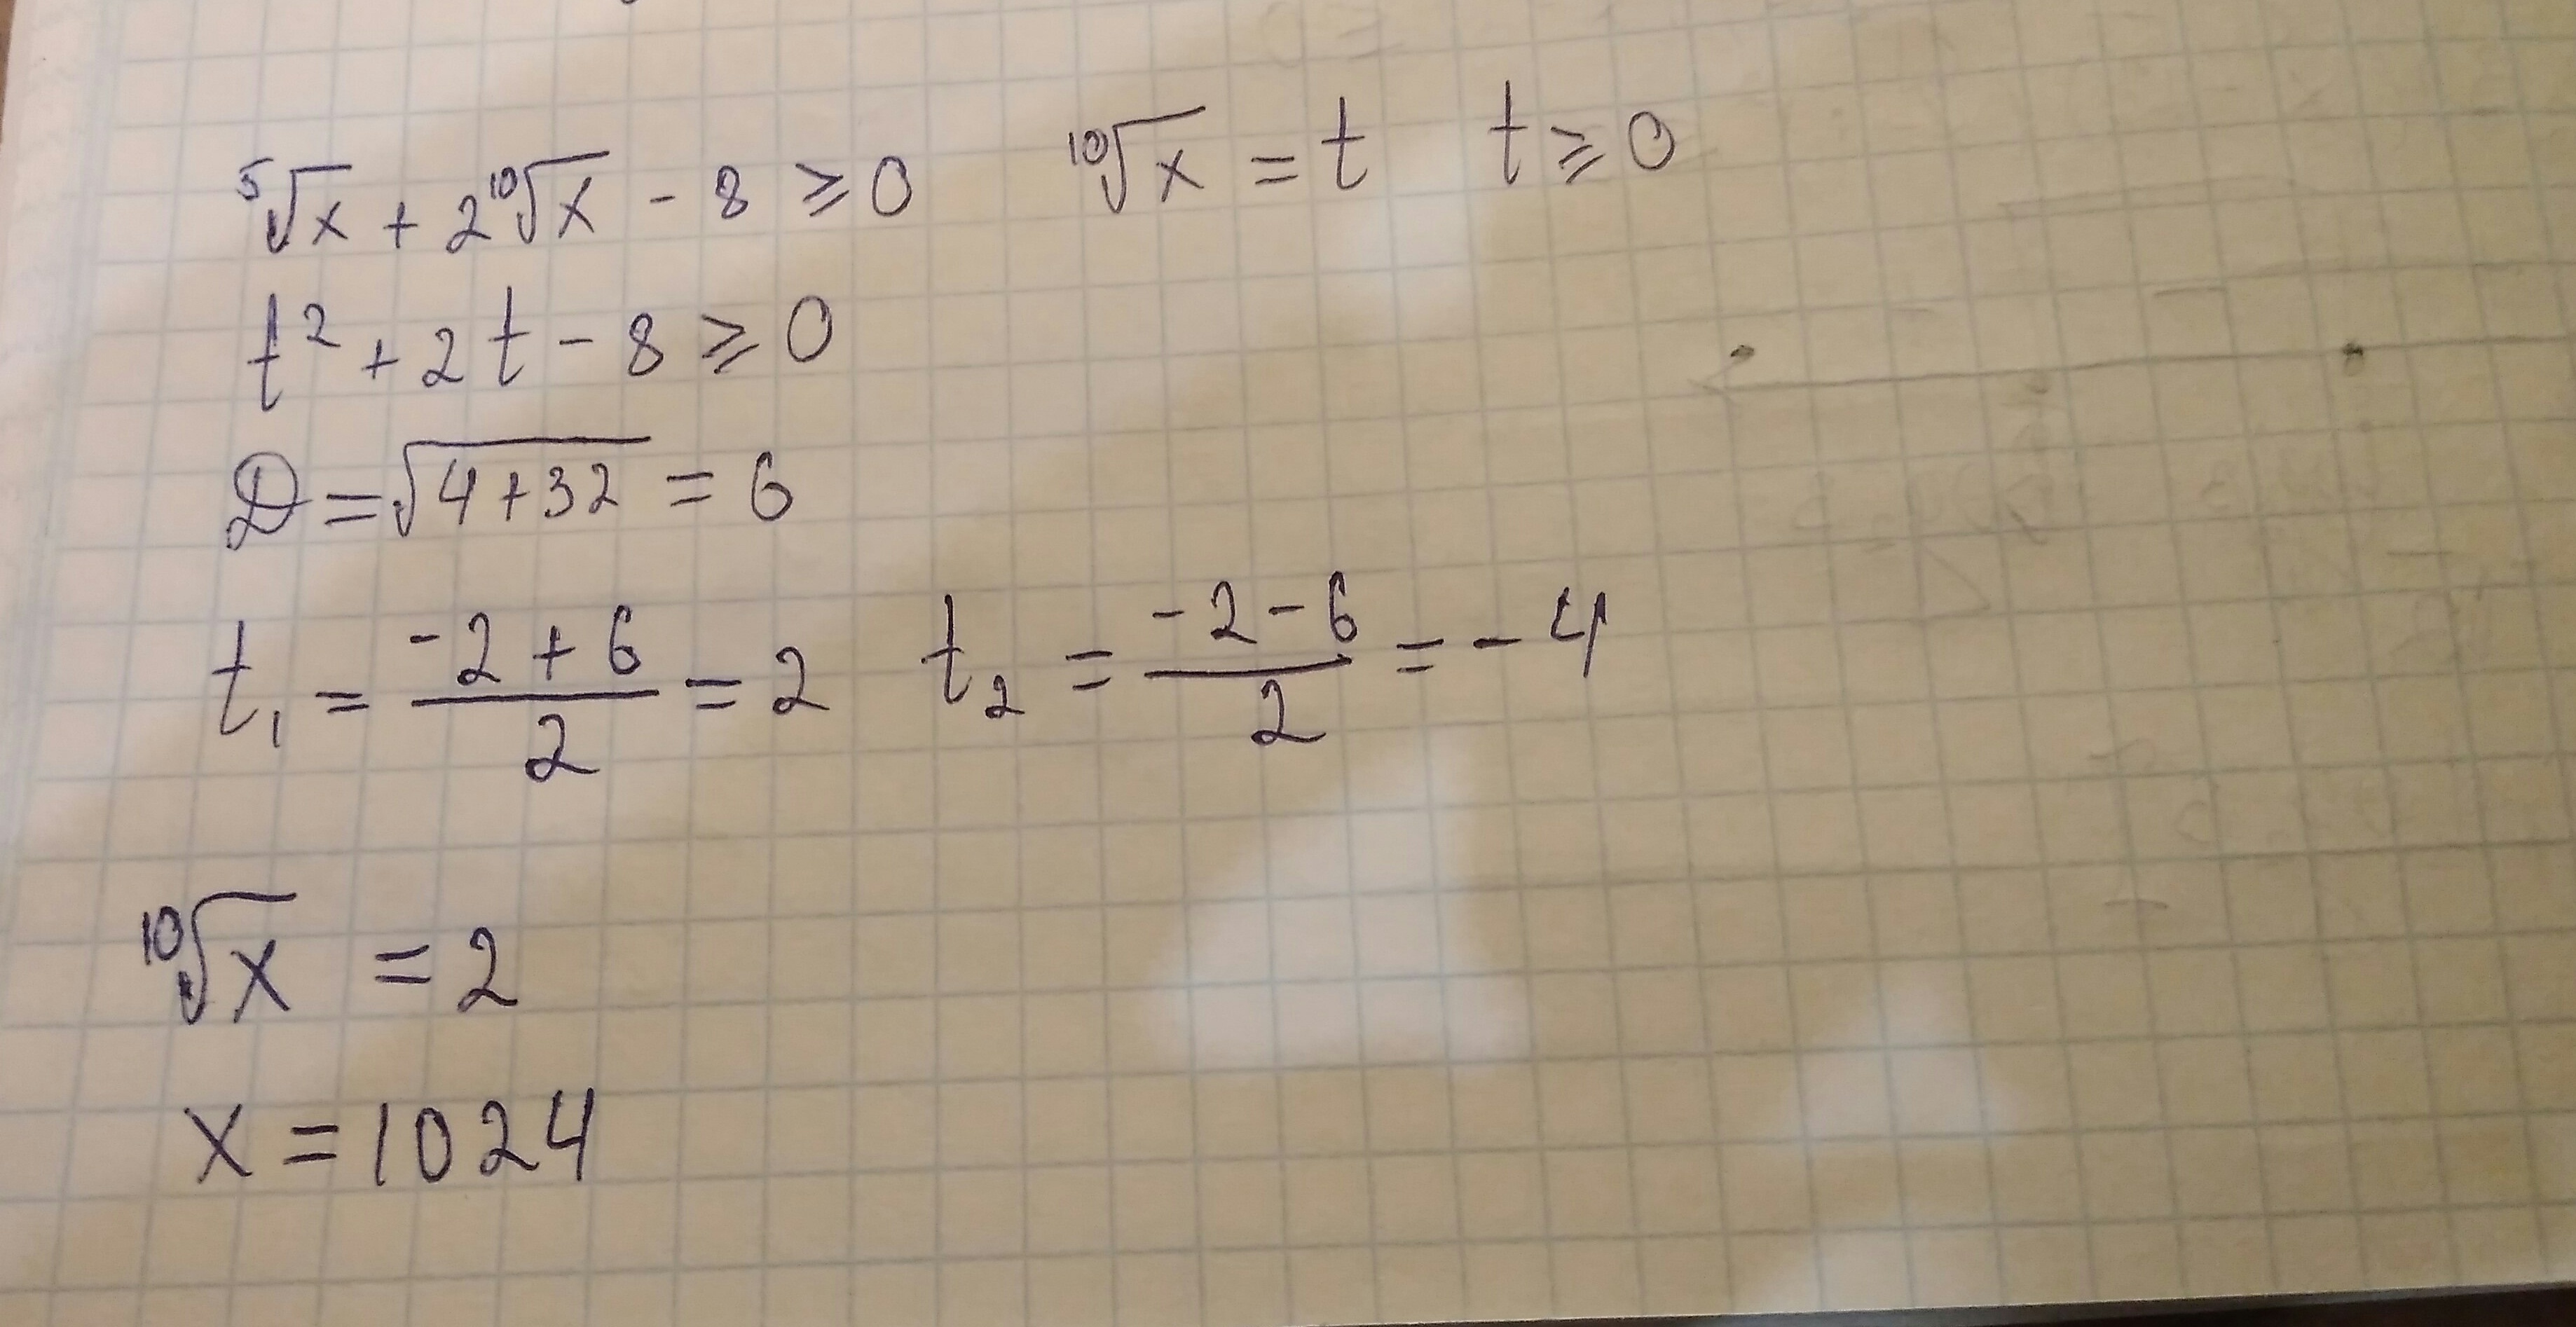 ⁵√x + 2¹⁰√x - 8 ≥ 0    ¹⁰√x = t    t ≥ 0
t² + 2t - 8 ≥ 0
D = √(4+32) = 6
t₁ = (-2+6)/2 = 2    t₂ = (-2-6)/2 = -4
¹⁰√x = 2
x = 1024